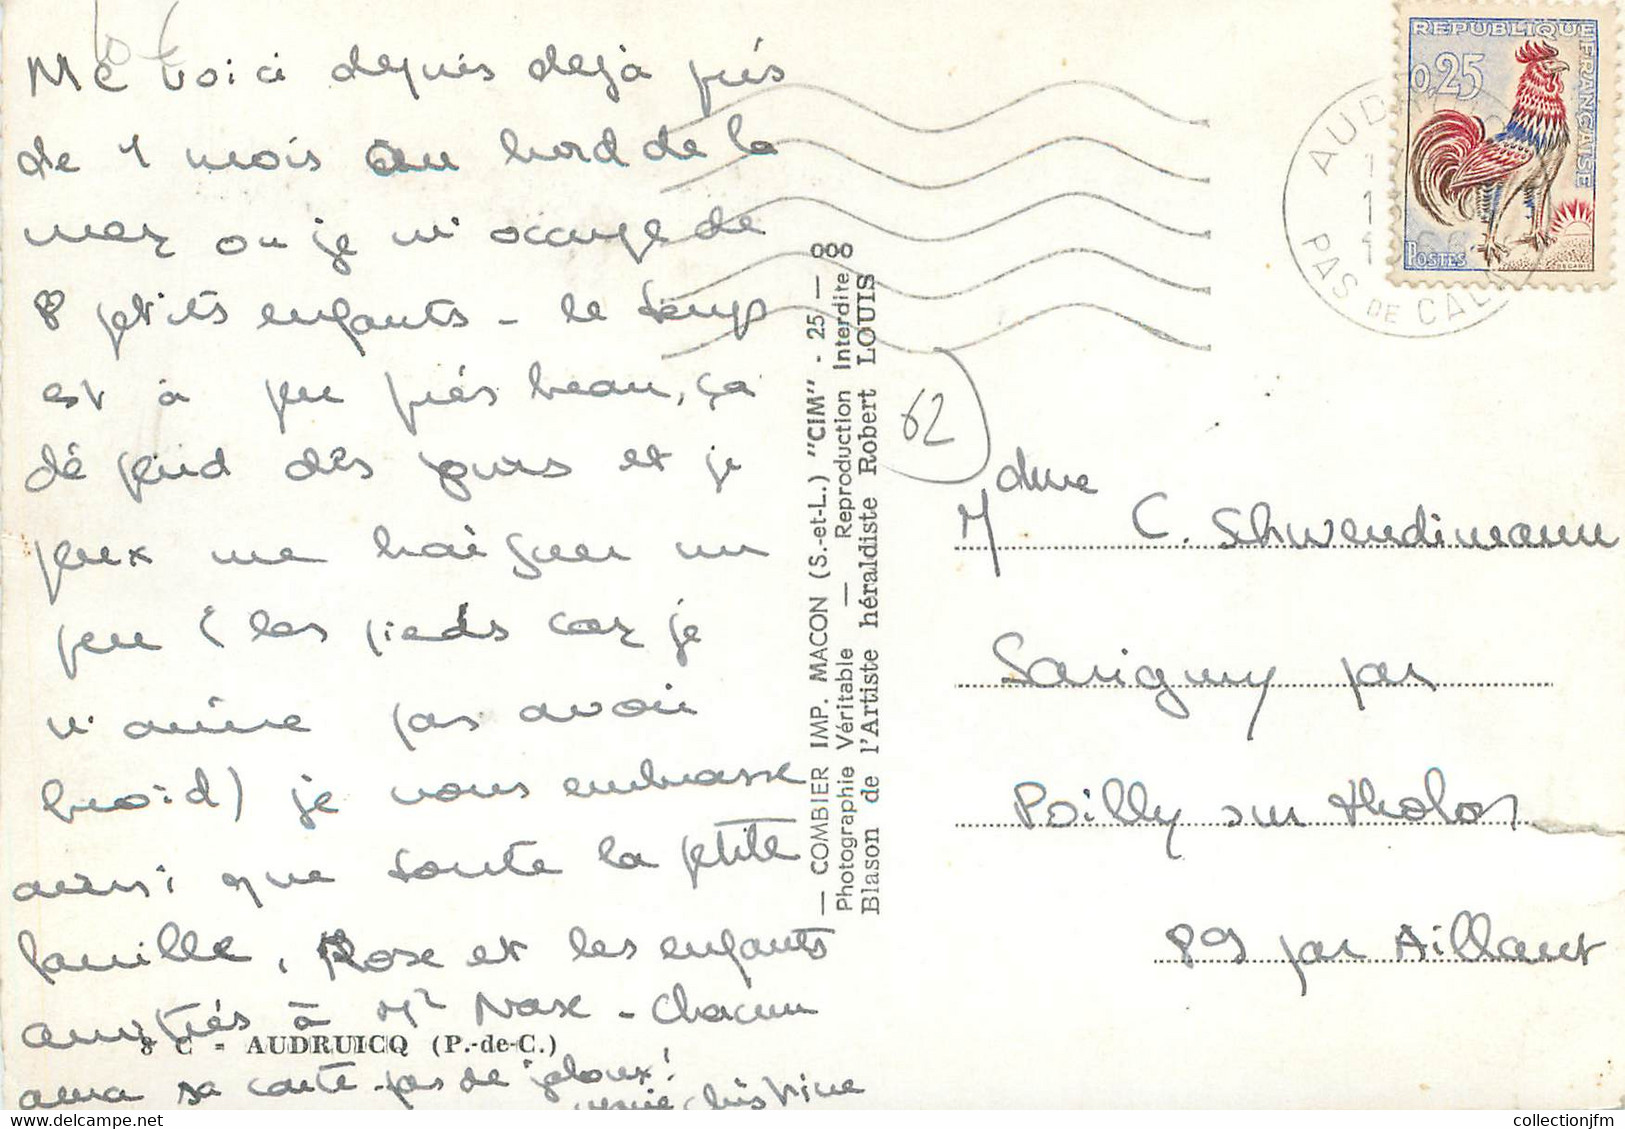 Me voici depuis dejà près
de 1 mois au bord de la
mer ou je m'occupe de
8 petits enfants - le temps
est à peu près beau, ça
dépend des jours et je
peux me baigner un
peu (les pieds car je
n'aime pas avoir
froid) je vous embrasse
ainsi que toute la petite
famille, Rose et les enfants
amitiés à Mr Naze - Chacun
aura sa carte pas de jaloux!
Marie Christine
8 C - AUDRUICQ (P.-de-C.)
— COMBIER IMP. MACON (S.-et-L.) "CIM" - 25 —
Photographie Véritable — Reproduction Interdite
Blason de l'Artiste héraldiste Robert LOUIS
62
REPUBLIQUE FRANÇAISE
0,25
POSTES
DECARIS
AUD
PAS DE CAL
Mdme C. Shwendimann
Savigny par
Poilly sur tholon
89 par Aillant
collectionjfm